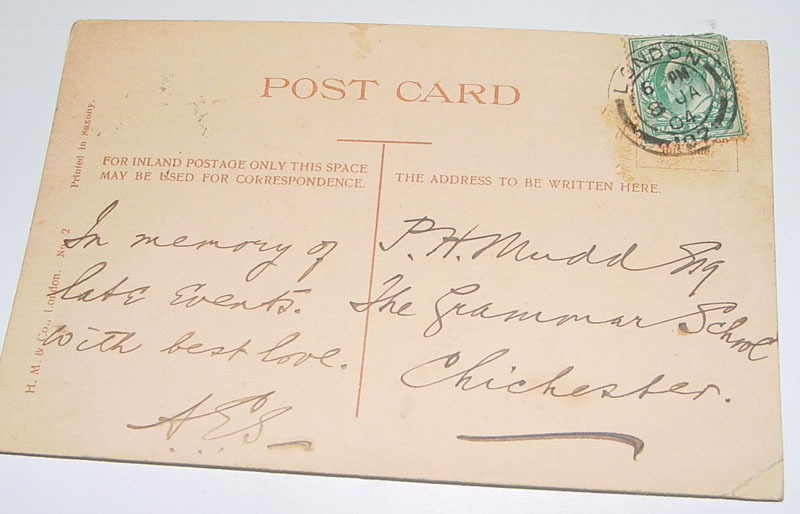 POST CARD
LONDON
6 PM
8 JA
04
FOR INLAND POSTAGE ONLY THIS SPACE
MAY BE USED FOR CORRESPONDENCE.
THE ADDRESS TO BE WRITTEN HERE.
Printed in Saxony.
H. M. & Co., London. No. 2
In memory of
late events.
With best love.
P. H. Mudd Esq
The Grammar School
Chichester.